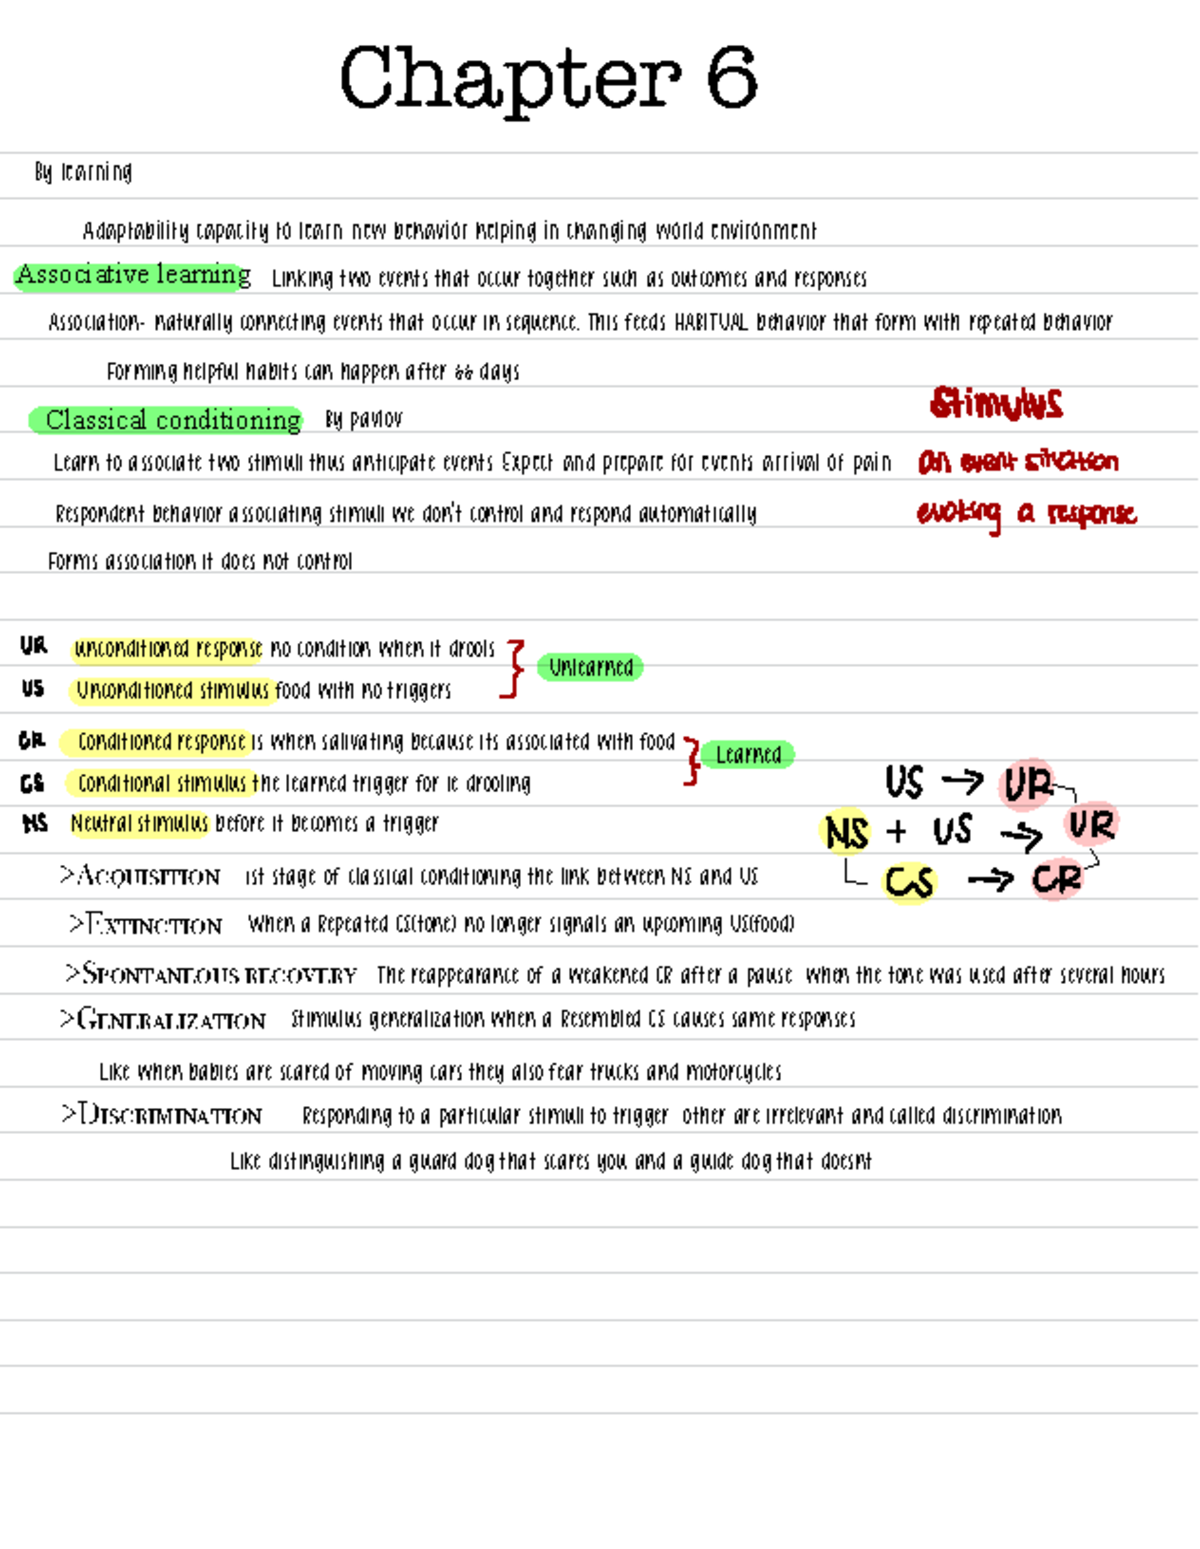 Chapter 6
By learning
Adaptability capacity to learn new behavior helping in changing world environment
Associative learning Linking two events that occur together such as outcomes and responses
Association- naturally connecting events that occur in sequence. This feeds HABITUAL behavior that form with repeated behavior
Forming helpful habits can happen after 66 days
Stimulus
Classical conditioning By pavlov
Learn to associate two stimuli thus anticipate events Expect and prepare for events arrival of pain
an event situation
Respondent behavior associating stimuli we don't control and respond automatically
evoking a response
Forms association it does not control
UR unconditioned response no condition when it drools
Unlearned
US Unconditioned stimulus food with no triggers
CR Conditioned response is when salivating because its associated with food
Learned
CS Conditional stimulus the learned trigger for ie drooling
US → UR
NS Neutral stimulus before it becomes a trigger
NS + US → UR
>Acquisition 1st stage of classical conditioning the link between NS and US
CS → CR
>Extinction When a Repeated CS(tone) no longer signals an upcoming US(food)
>Spontaneous recovery The reappearance of a weakened CR after a pause when the tone was used after several hours
>Generalization Stimulus generalization when a Resembled CS causes same responses
Like when babies are scared of moving cars they also fear trucks and motorcycles
>Discrimination Responding to a particular stimuli to trigger other are irrelevant and called discrimination
Like distinguishing a guard dog that scares you and a guide dog that doesnt